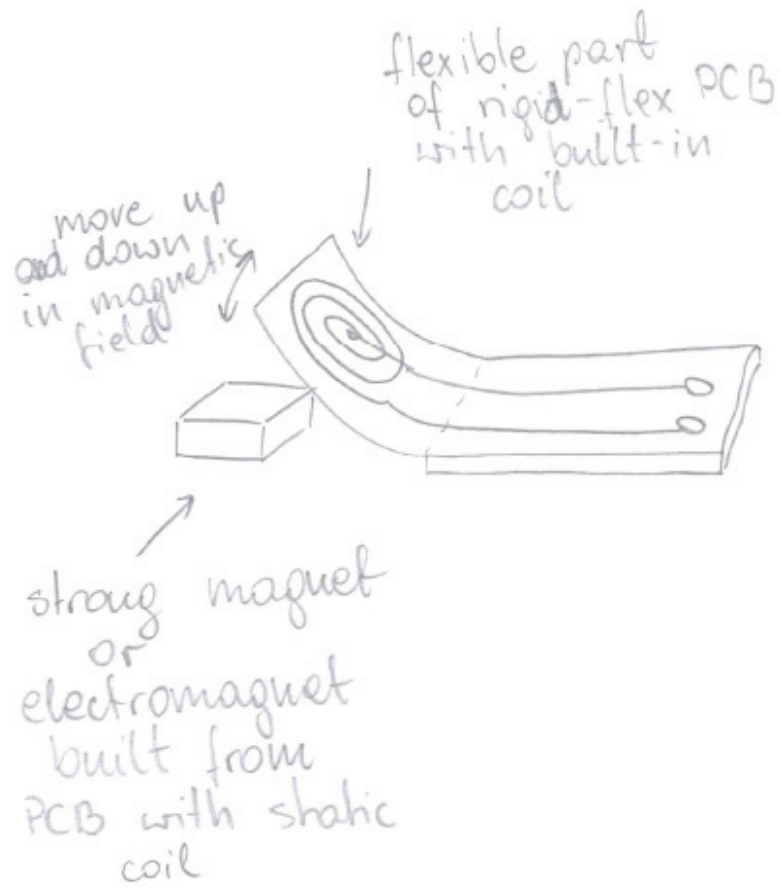 flexible part
of rigid-flex PCB
with built-in
coil
move up
and down
in magnetic
field
strong magnet
or
electromagnet
built from
PCB with static
coil